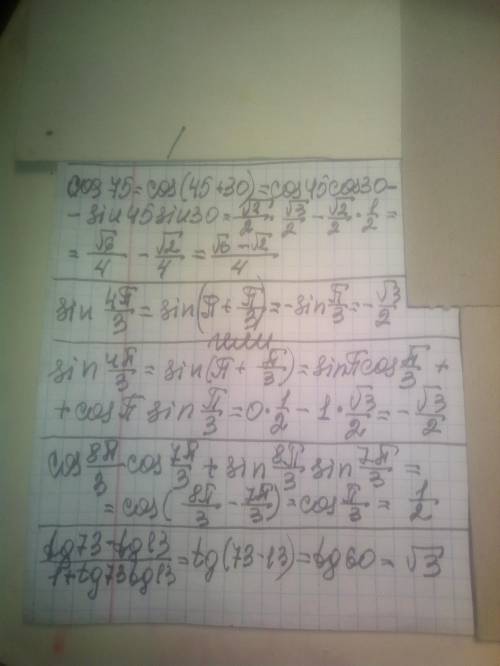 cos 75 = cos(45+30) = cos45cos30 -
- sin45sin30 = √2/2 · √3/2 - √2/2 · 1/2 =
= √6/4 - √2/4 = (√6-√2)/4
sin 4π/3 = sin(π + π/3) = -sin π/3 = -√3/2
или
sin 4π/3 = sin(π + π/3) = sinπcos π/3 +
+ cosπ sin π/3 = 0·1/2 - 1·√3/2 = -√3/2
cos 8π/3 cos 7π/3 + sin 8π/3 sin 7π/3 =
= cos(8π/3 - 7π/3) = cos π/3 = 1/2
(tg73-tg13)/(1+tg73tg13) = tg(73-13) = tg60 = √3